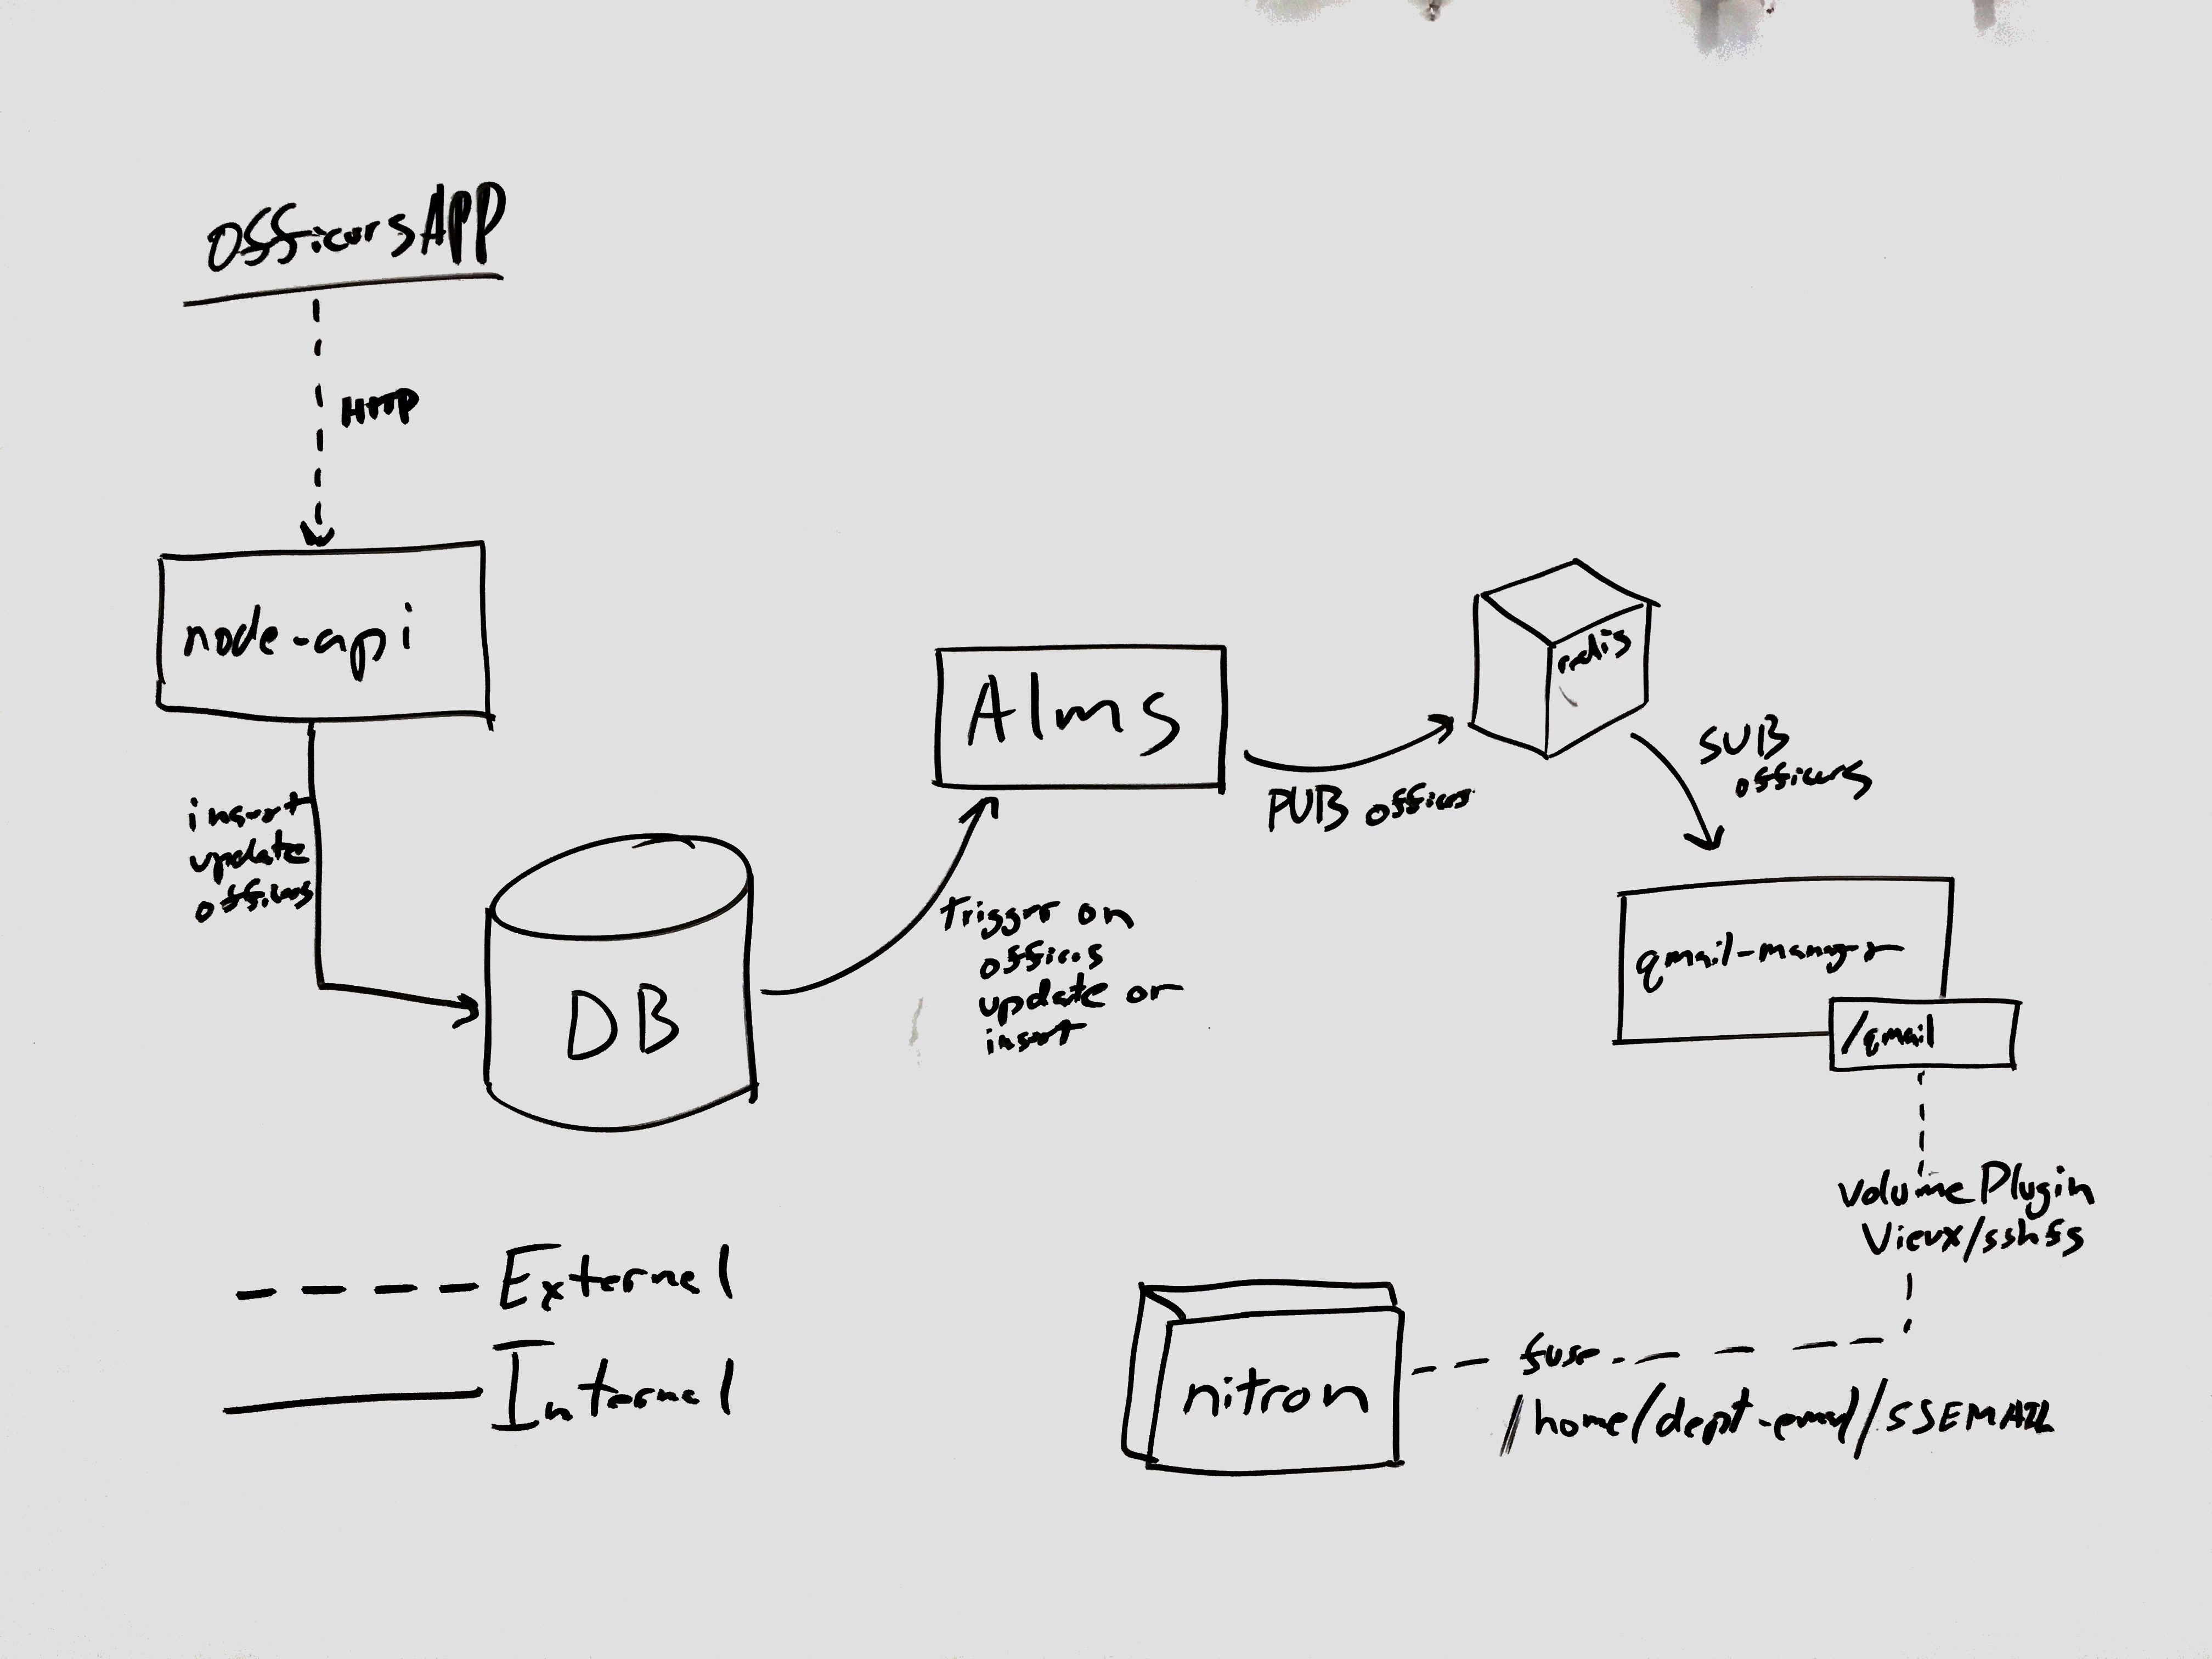 officersAPP
HTTP
node-api
insert
update
officers
DB
Alms
trigger on
officers
update or
insert
PUB officers
redis
SUB
officers
qmail-manager
/qmail
volumePlugin
Vieux/sshfs
fuse
/home/dept-email/SSEMAIL
nitron
External
Internal